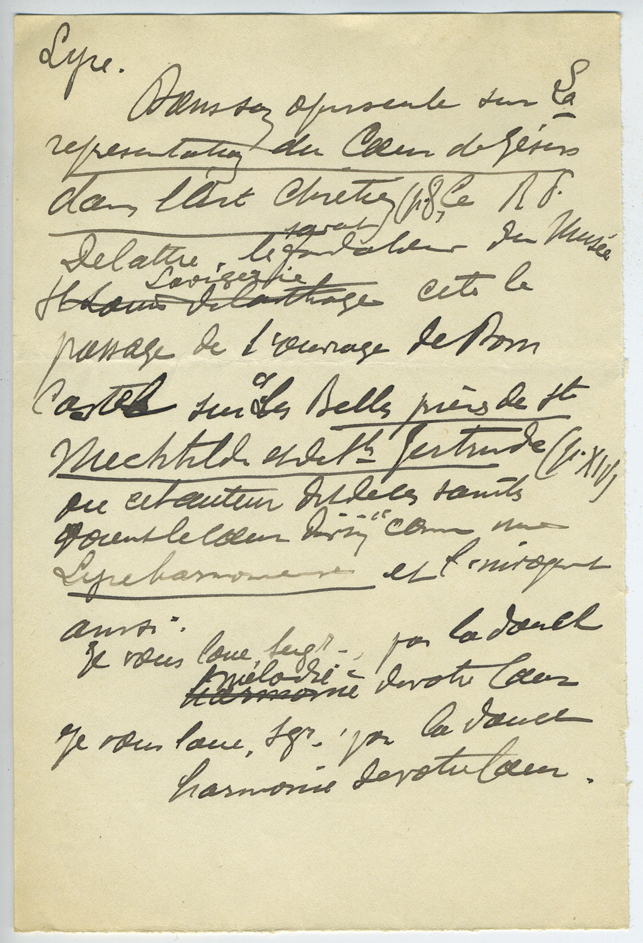 Lyre.
Dans son opuscule sur La
représentation du Cœur de Jésus
dans l'Art Chrétien (p. 8) le R. P.
savant
Delattre, le fondateur du Musée
Lavigerie
St Louis de Carthage cite le
passage de l'ouvrage de Dom
Castel sur "Les Belles prières de Ste
Mechtilde et de Ste Gertrude (p. XVI)
où cet auteur dit de ces saints
le Cœur divin "comme une
Lyre harmonieuse et l'invoquent
ainsi :
Je vous loue, Seigr, par la douce
mélodie
harmonie de votre Cœur
Je vous loue, Sgr, par la douce
harmonie de votre Cœur.